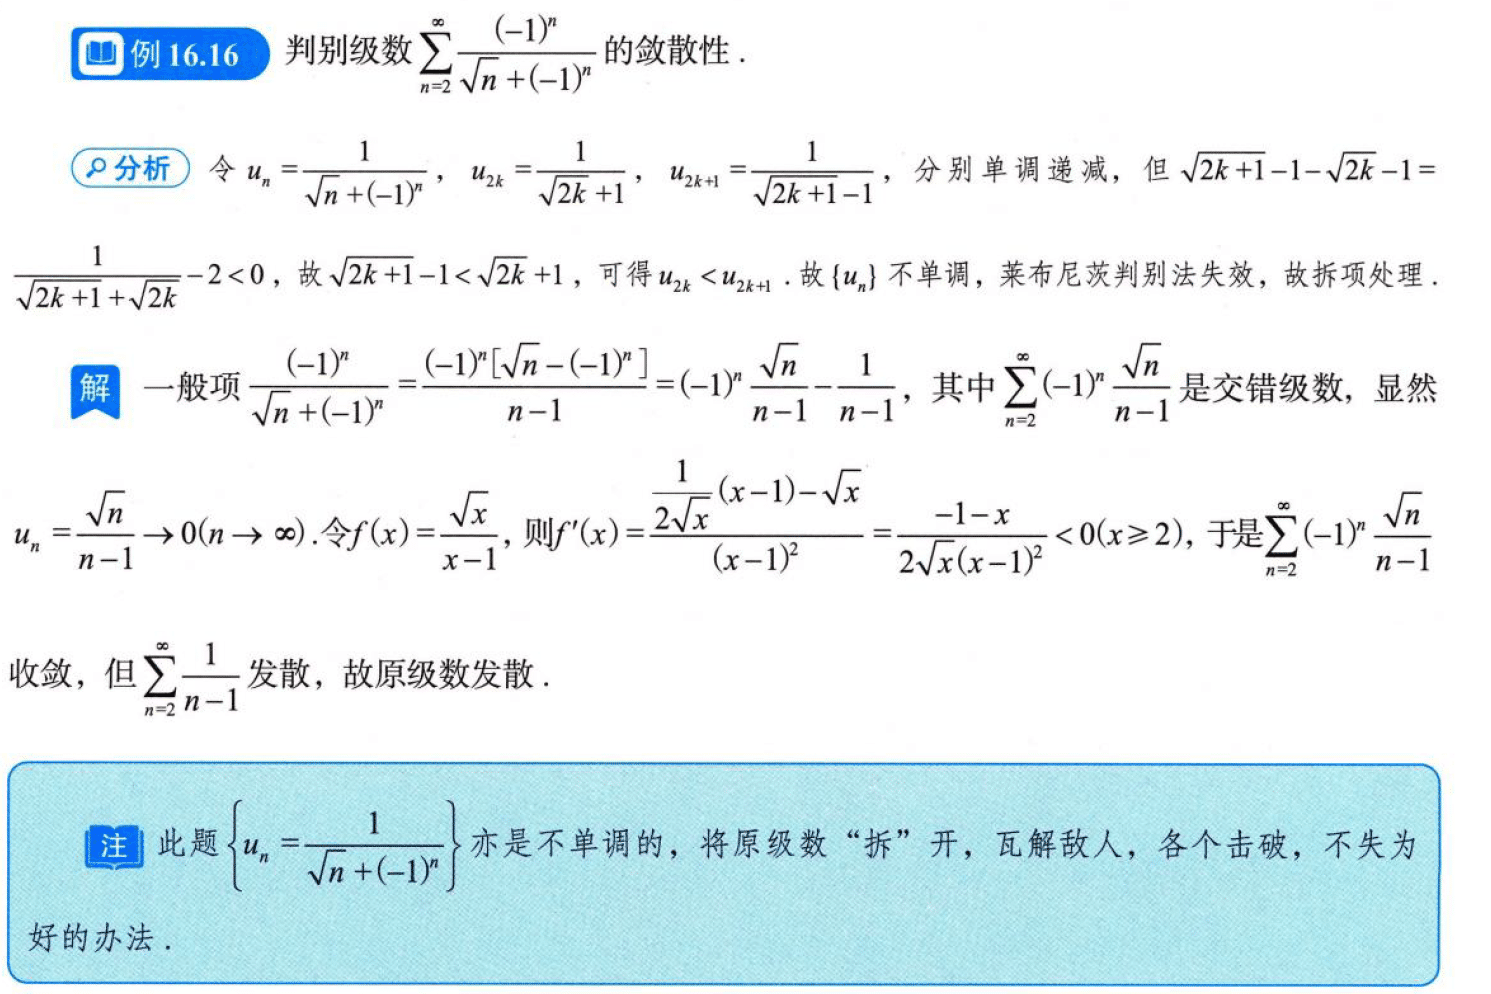 例 16.16 判别级数 $\sum_{n=2}^{\infty}\frac{(-1)^n}{\sqrt{n}+(-1)^n}$ 的敛散性.
分析 令 $u_n=\frac{1}{\sqrt{n}+(-1)^n}$, $u_{2k}=\frac{1}{\sqrt{2k}+1}$, $u_{2k+1}=\frac{1}{\sqrt{2k+1}-1}$, 分别单调递减, 但 $\sqrt{2k+1}-1-\sqrt{2k}-1=$
$\frac{1}{\sqrt{2k+1}+\sqrt{2k}}-2<0$, 故 $\sqrt{2k+1}-1<\sqrt{2k}+1$, 可得 $u_{2k}<u_{2k+1}$. 故 $\{u_n\}$ 不单调, 莱布尼茨判别法失效, 故拆项处理.
解 一般项 $\frac{(-1)^n}{\sqrt{n}+(-1)^n}=\frac{(-1)^n[\sqrt{n}-(-1)^n]}{n-1}=(-1)^n\frac{\sqrt{n}}{n-1}-\frac{1}{n-1}$, 其中 $\sum_{n=2}^{\infty}(-1)^n\frac{\sqrt{n}}{n-1}$ 是交错级数, 显然
$u_n=\frac{\sqrt{n}}{n-1}\to 0(n\to\infty)$. 令 $f(x)=\frac{\sqrt{x}}{x-1}$, 则 $f'(x)=\frac{\frac{1}{2\sqrt{x}}(x-1)-\sqrt{x}}{(x-1)^2}=\frac{-1-x}{2\sqrt{x}(x-1)^2}<0(x\geqslant 2)$, 于是 $\sum_{n=2}^{\infty}(-1)^n\frac{\sqrt{n}}{n-1}$
收敛, 但 $\sum_{n=2}^{\infty}\frac{1}{n-1}$ 发散, 故原级数发散.
注 此题 $\left\{u_n=\frac{1}{\sqrt{n}+(-1)^n}\right\}$ 亦是不单调的, 将原级数“拆”开, 瓦解敌人, 各个击破, 不失为
好的办法.